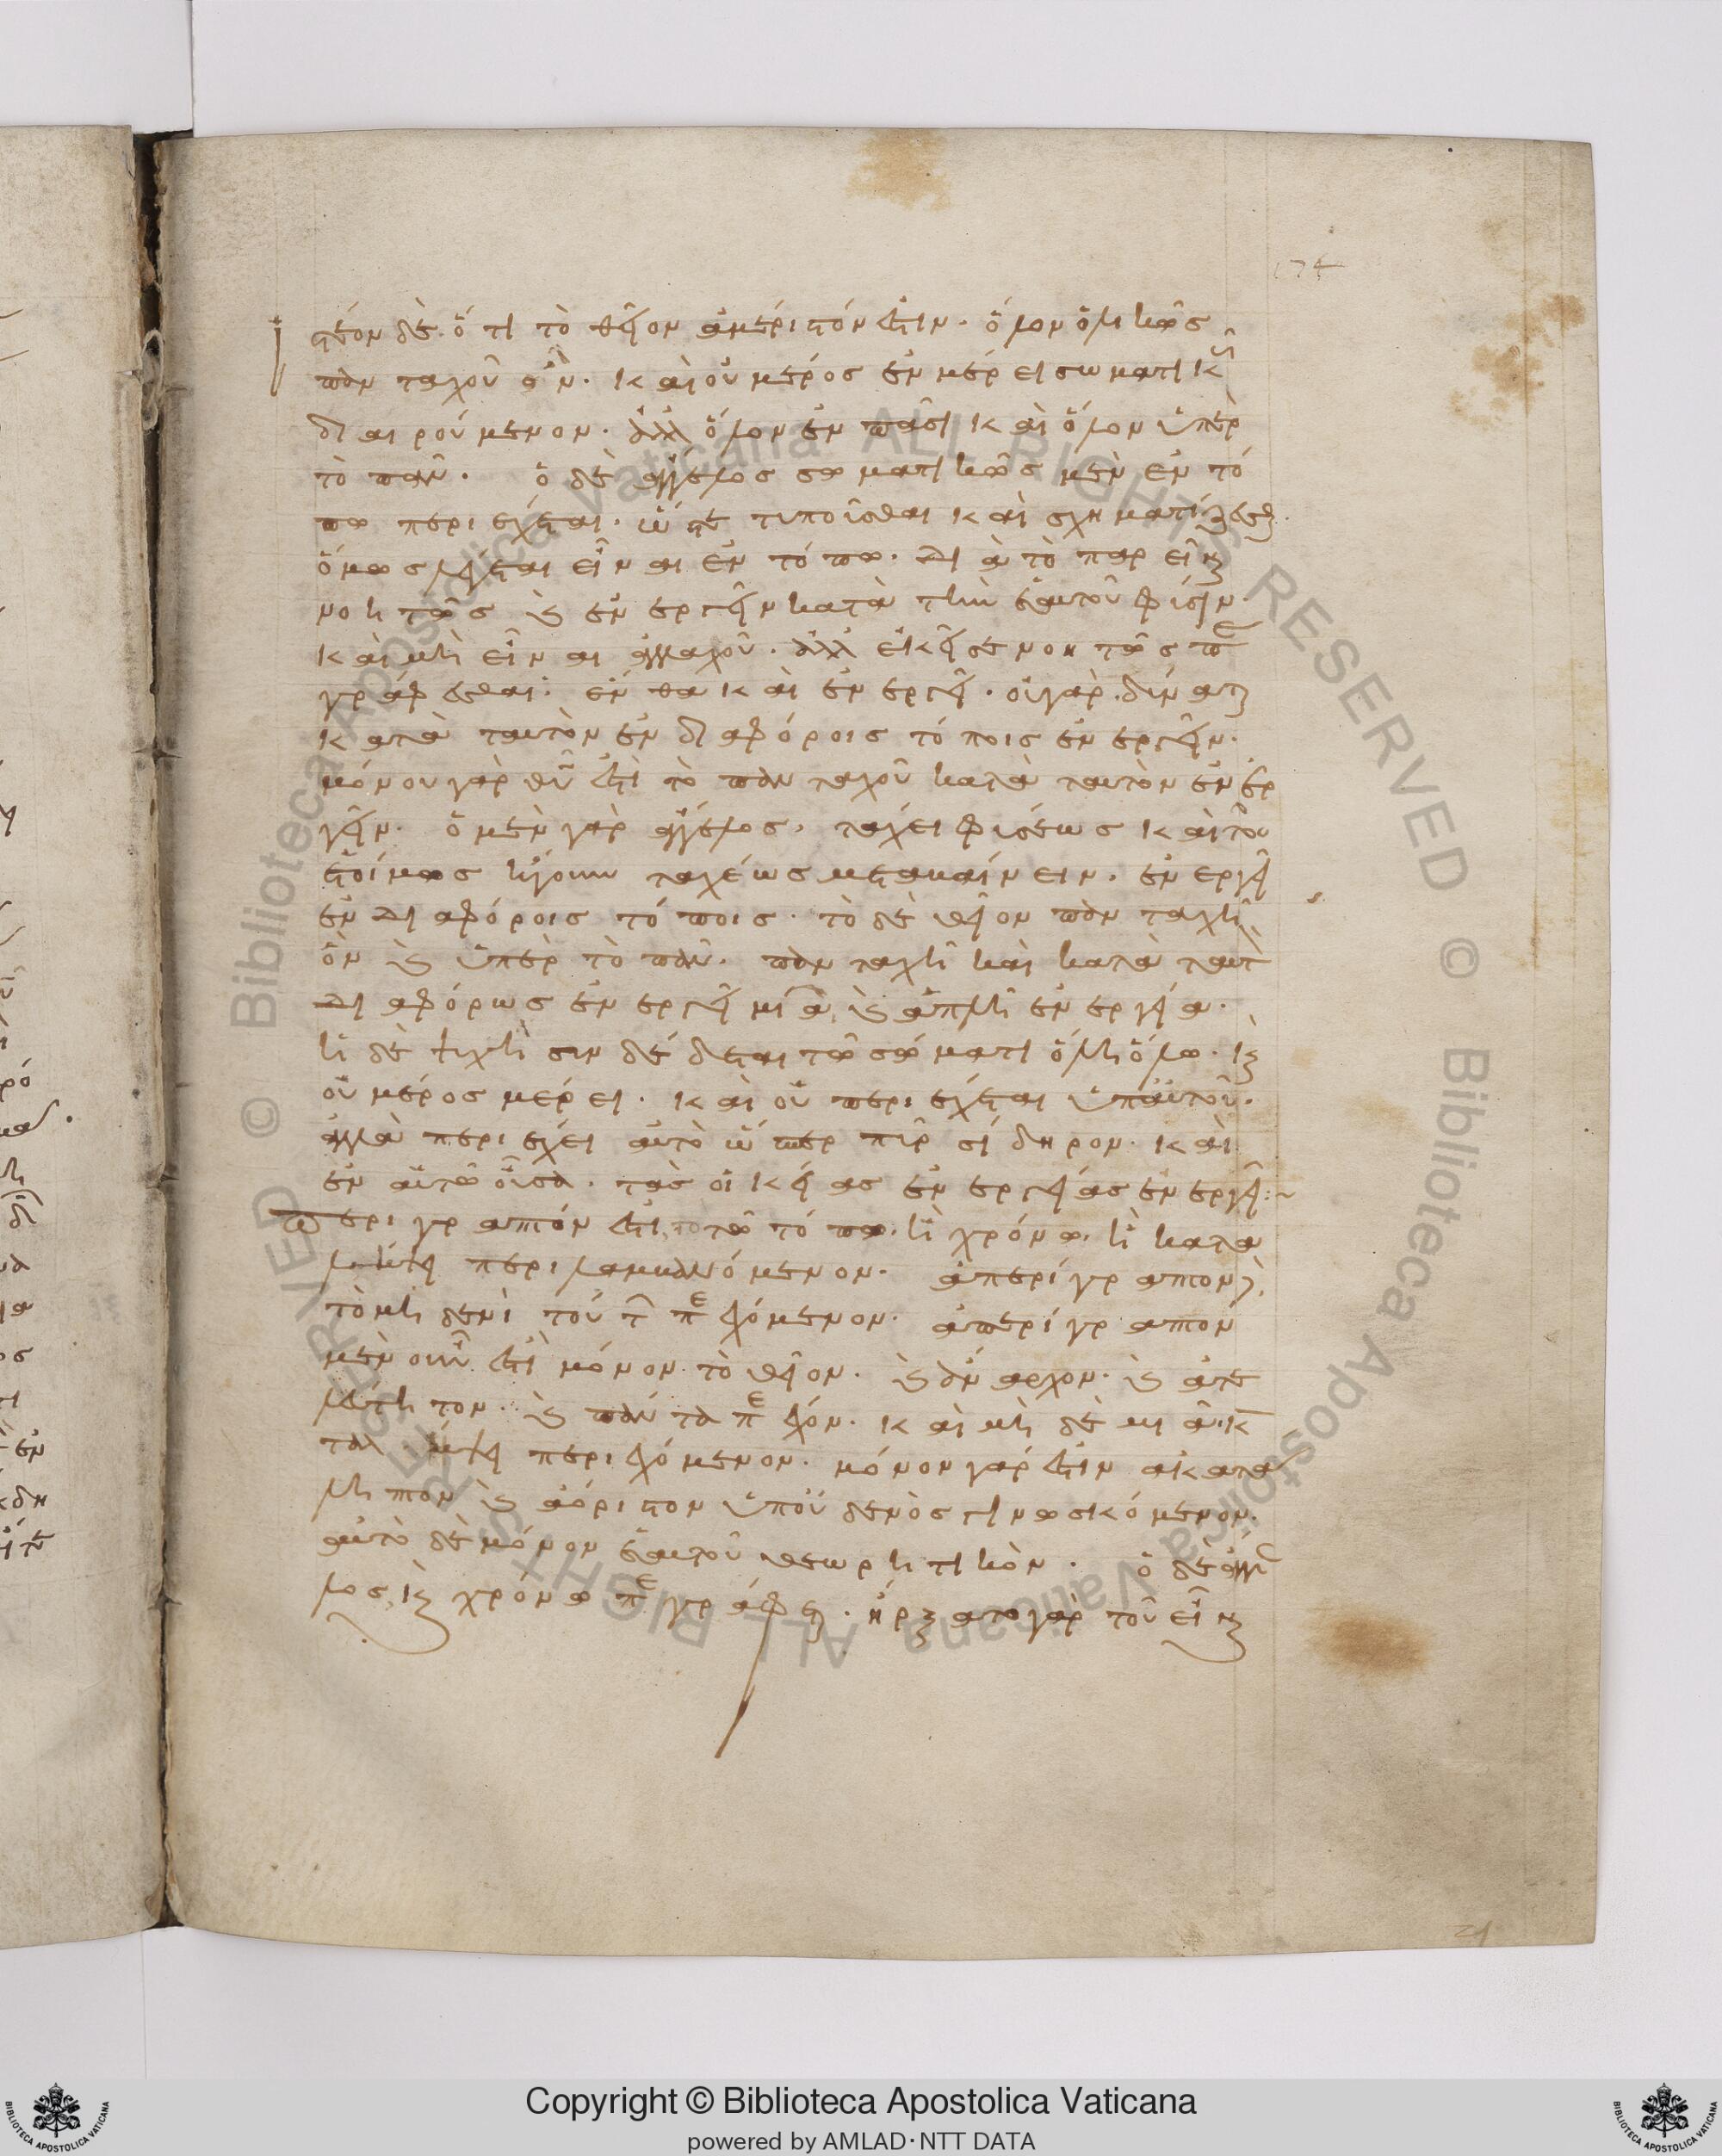 174
ἰστέον δὲ ὅτι τὸ θεῖον ἀμερές ἐστιν· ὅλον ὁλικῶς
πανταχοῦ ὄν· καὶ οὐ μέρος ἐν μέρει σωματικῶς
διαιρούμενον· ἀλλ' ὅλον ἐν πᾶσι καὶ ὅλον ὑπὲρ
τὸ πᾶν· ὁ δὲ ἄγγελος σωματικῶς μὲν ἐν τό
πω περιέχεται· ὥστε τυποῦσθαι καὶ σχηματίζεσθαι·
ὅμως λέγεται εἶναι ἐν τόπω· διὰ τὸ παρεῖναι
νοητῶς καὶ ἐνεργεῖν κατὰ τὴν ἑαυτοῦ φύσιν·
καὶ μὴ εἶναι ἀλλαχοῦ· ἀλλ' ἐκεῖσε νοητῶς περι
γράφεσθαι· ἔνθα καὶ ἐνεργεῖ· οὐ γὰρ δύναται
κατὰ ταυτὸν ἐν διαφόροις τόποις ἐνεργεῖν·
μόνου γὰρ θεοῦ ἐστὶ τὸ πανταχοῦ κατὰ ταυτὸν ἐνερ
γεῖν· ὁ μὲν γὰρ ἄγγελος, τάχει φύσεως καὶ τῶ
ἑτοίμως ἤγουν ταχέως μεταβαίνειν· ἐνεργεῖ
ἐν διαφόροις τόποις· τὸ δὲ θεῖον πανταχῆ
ὂν καὶ ὑπὲρ τὸ πᾶν· πανταχῆ καὶ κατὰ ταυτὸ
διαφόρως ἐνεργεῖ μιᾶ καὶ ἁπλῆ ἐνεργεία·
ἡ δὲ ψυχὴ συνδέδεται τῶ σώματι ὅλη ὅλω· καὶ
οὐ μέρος μέρει· καὶ οὐ περιέχεται ὑπ' αὐτοῦ·
ἀλλὰ περιέχει αὐτὸ ὥσπερ πῦρ σίδηρον· καὶ
ἐν αὐτῶ οὖσα· τὰς οἰκείας ἐνεργείας ἐνεργεῖ:~
περιγραπτόν ἐστι, τὸ τῶ τόπω· ἢ χρόνω· ἢ κατα
λήψει περιλαμβανόμενον· ἀπερίγραπτον δὲ,
τὸ μηδενὶ τούτων περιεχόμενον· ἀπερίγραπτον
μὲν οὖν ἐστὶ μόνον τὸ θεῖον· καὶ ἄναρχον· καὶ ἀτε
λεύτητον· καὶ πάντα περιέχον· καὶ μηδὲ μιᾶ κα
ταλήψει περιεχόμενον· μόνον γάρ ἐστιν ἀκατά
ληπτον καὶ ἀόριστον ὑπ' οὐδενὸς γινωσκόμενον·
αὐτὸ δὲ μόνον ἑαυτοῦ θεωρητικόν· ὁ δὲ ἄγγε
λος, καὶ χρόνω περιγράφεται· ἤρξατο γὰρ τοῦ εἶναι
Copyright © Biblioteca Apostolica Vaticana
powered by AMLAD·NTT DATA